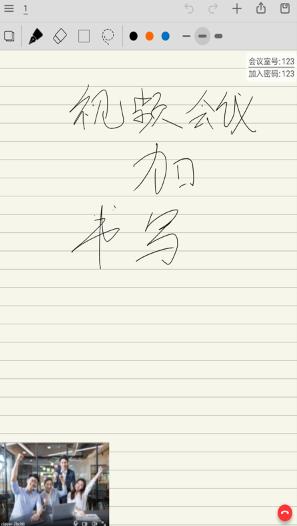 1
会议室号:123
加入密码:123
视频会议
加
书写